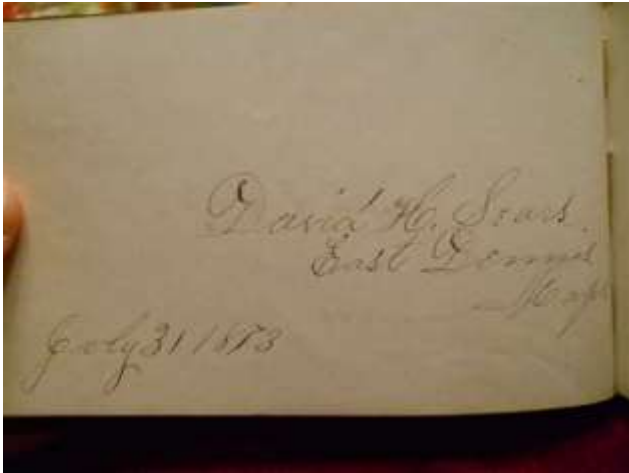 David H. Sears.
East Dennis
Mass
July 31 1873